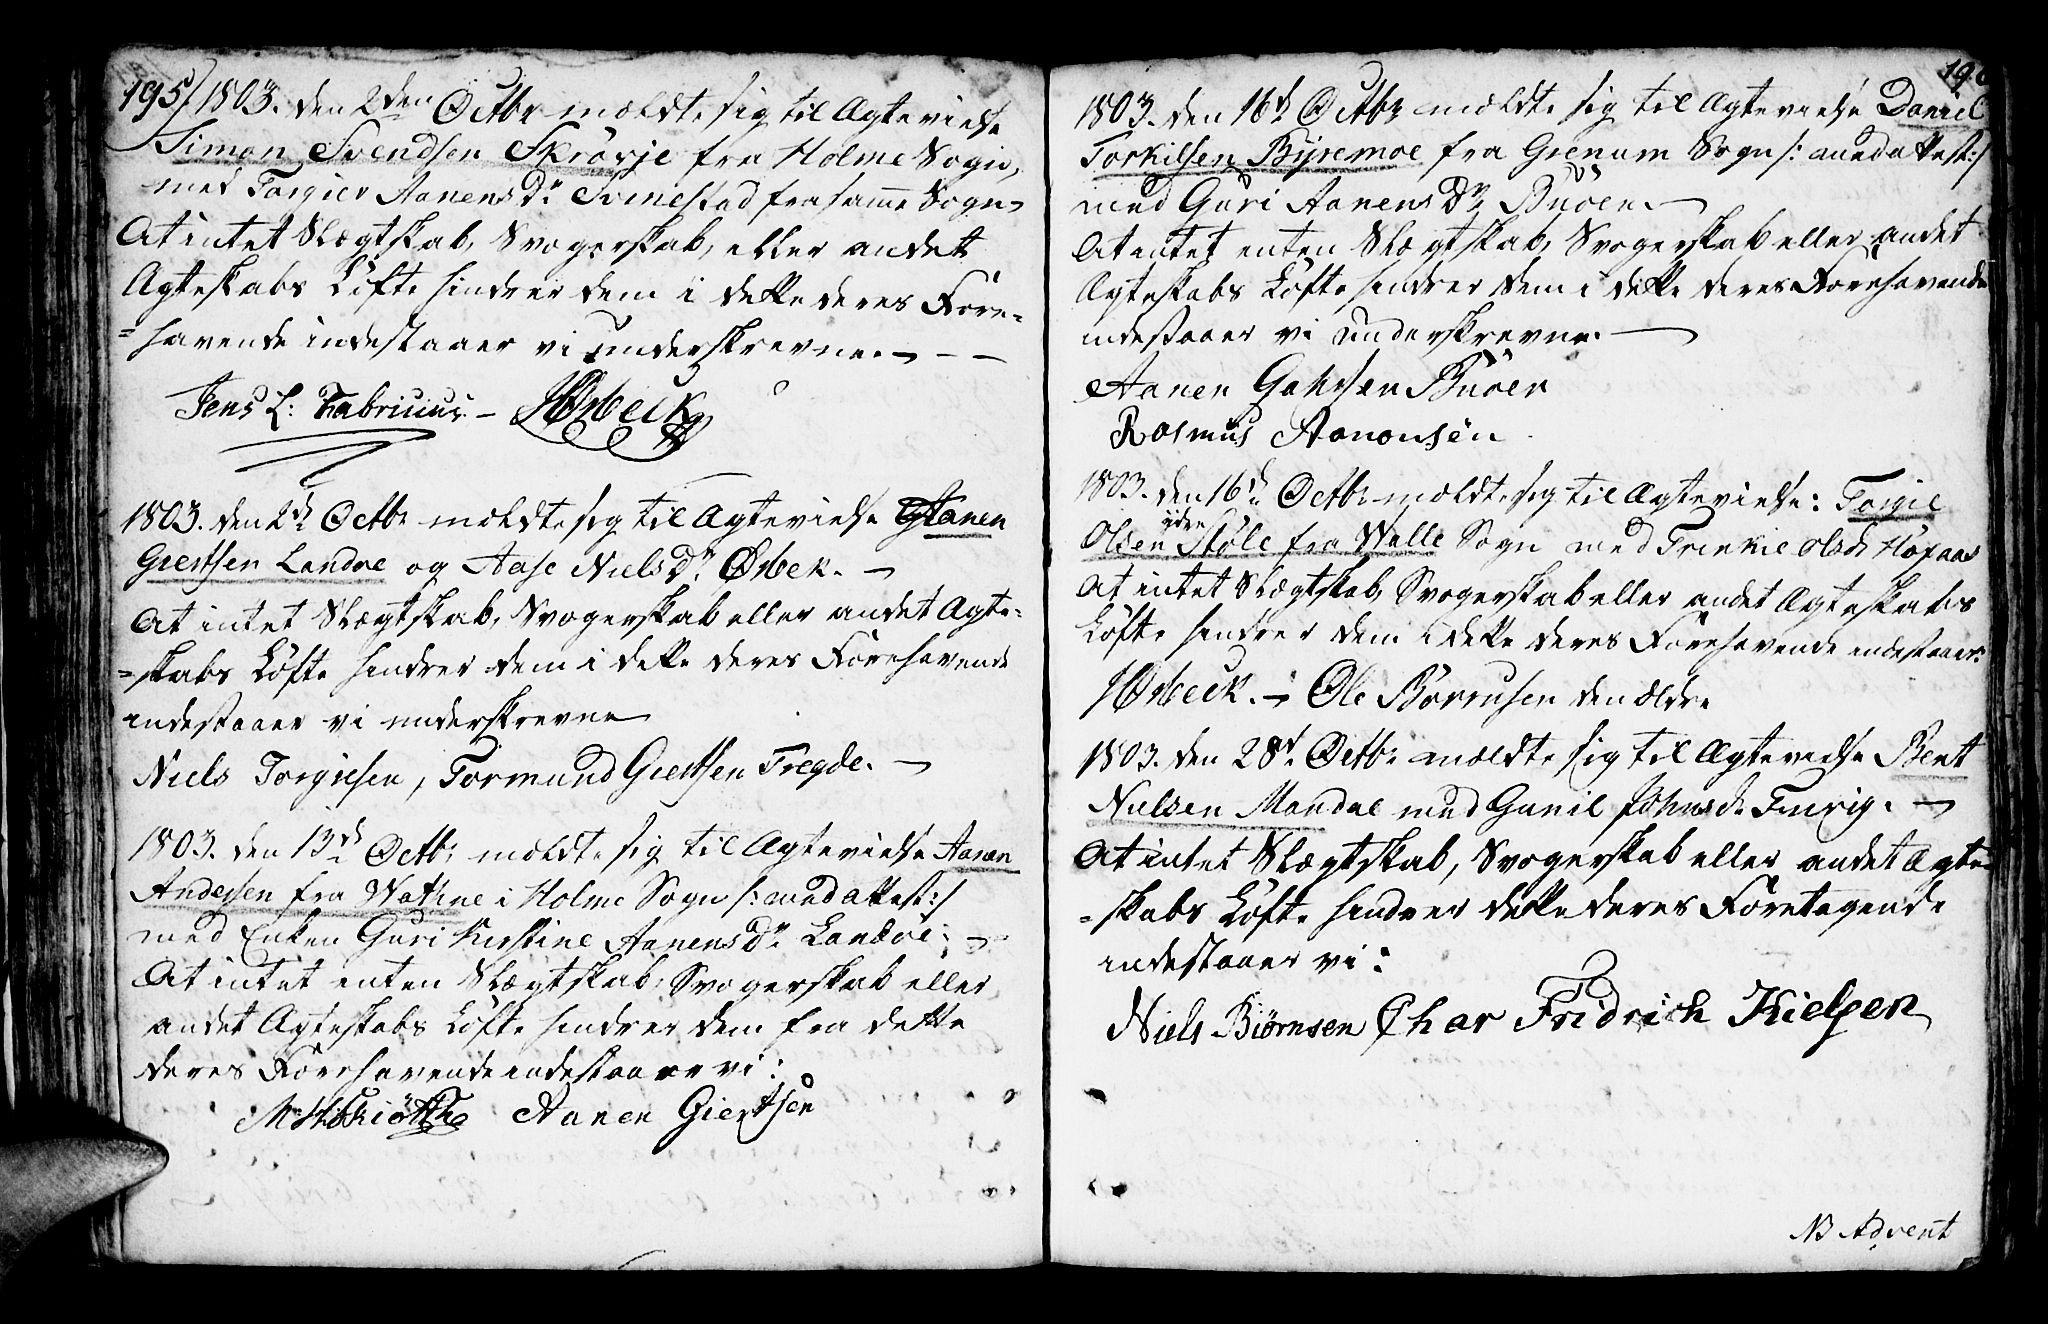 195/ 1803. den 2den Octbr mældte sig til Ægtevielse
Simon Svendsen Skrövje fra Holme Sogn,
med Torgier Aanens Dr Svinestad fra samme Sogn
At intet Slægtskab, Svogerskab, eller andet
Ægteskabs Löfte hindrer dem i dette deres Fore-
=havende indestaaer vi underskrevne. - - -
Jens L: Fabricius. - Ørbeck
1803. den 2d Octbr mældte sig til Ægtevielse Aanen
Giertsen Landøe og Aase Niels Dr Ørbek. -
At intet Slægtskab, Svogerskab eller andet Ægte-
=skabs Löfte hindrer dem i dette deres Forehavende
indestaaer vi underskrevne
Niels Torgiesen, Tormund Giertsen Tregde. -
1803. den 13d Octbr mældte sig til Ægtevielse Aanen
Andersen fra Wathne i Holme Sogn /: med attest:/
med Enken Guri Kirstine Aanens Dr Landøe; -
At intet enten Slægtskab, Svogerskab eller
andet Ægteskabs Löfte hindrer dem fra dette
deres Forehavende indestaaer vi:
Aanen Giertsen
196
1803. den 16d Octbr mældte sig til Ægtevielse Daniel
Torkilsen Byremoe fra Grenum Sogn /: med attest:/
med Guri Aanens Dr Buöen. -
At intet enten Slægtskab, Svogerskab eller andet
Ægteskabs Löfte hindrer dem i dette deres Forehavende
indestaaer vi underskrevne. -
Aanen Gahrsen Buöen
Rasmus Aanonsen
1803. den 16d Octbr mældte sig til Ægtevielse: Torgie
Olsen ydre Støle fra Walle Sogn med Trinkie Olsdr Höyaas
At intet Slægtskab, Svogerskab eller andet Ægteskabs
Löfte hindrer dem i dette deres Forehavende indestaaer:
Ørbeck. - Ole Börrusen den ældre
1803. den 28d Octbr mældte sig til Ægtevielse Bent
Nielsen Mandal med Gunil Johnsdr -
At intet Slægtskab, Svogerskab eller andet Ægte-
=skabs Löfte hindrer dette deres Foretagende
indestaaer vi:
Niels Biörnsen Char Fridrich Kielsen
NB Advent